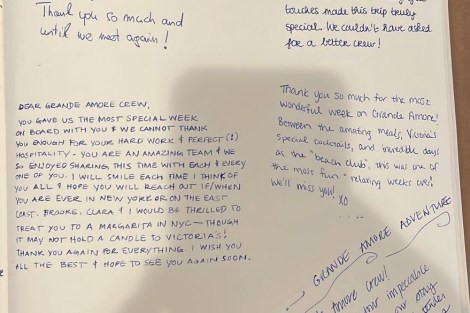 Thank you so much and
until we meet again!
touches made this trip truly
special. We couldn't have asked
for a better crew!
DEAR GRANDE AMORE CREW,
YOU GAVE US THE MOST SPECIAL WEEK
ON BOARD WITH YOU & WE CANNOT THANK
YOU ENOUGH FOR YOUR HARD WORK & PERFECT (!)
HOSPITALITY - YOU ARE AN AMAZING TEAM & WE
SO ENJOYED SHARING THIS TIME WITH EACH & EVERY
ONE OF YOU. I WILL SMILE EACH TIME I THINK OF
YOU ALL & HOPE YOU WILL REACH OUT IF/WHEN
YOU ARE EVER IN NEW YORK OR ON THE EAST
COAST. BROOKE, CLARA & I WOULD BE THRILLED TO
TREAT YOU TO A MARGARITA IN NYC - THOUGH
IT MAY NOT HOLD A CANDLE TO VICTORIA'S!
THANK YOU AGAIN FOR EVERYTHING. I WISH YOU
ALL THE BEST & HOPE TO SEE YOU AGAIN SOON.
Thank you so much for the most
wonderful week on Grande Amore!
Between the amazing meals, Victoria's
special cocktails, and incredible days
as the "beach club", this was one of
the most fun & relaxing weeks ever!
We'll miss you!
XO
GRANDE AMORE ADVENTURE
Amore crew!
your impeccable
our stay